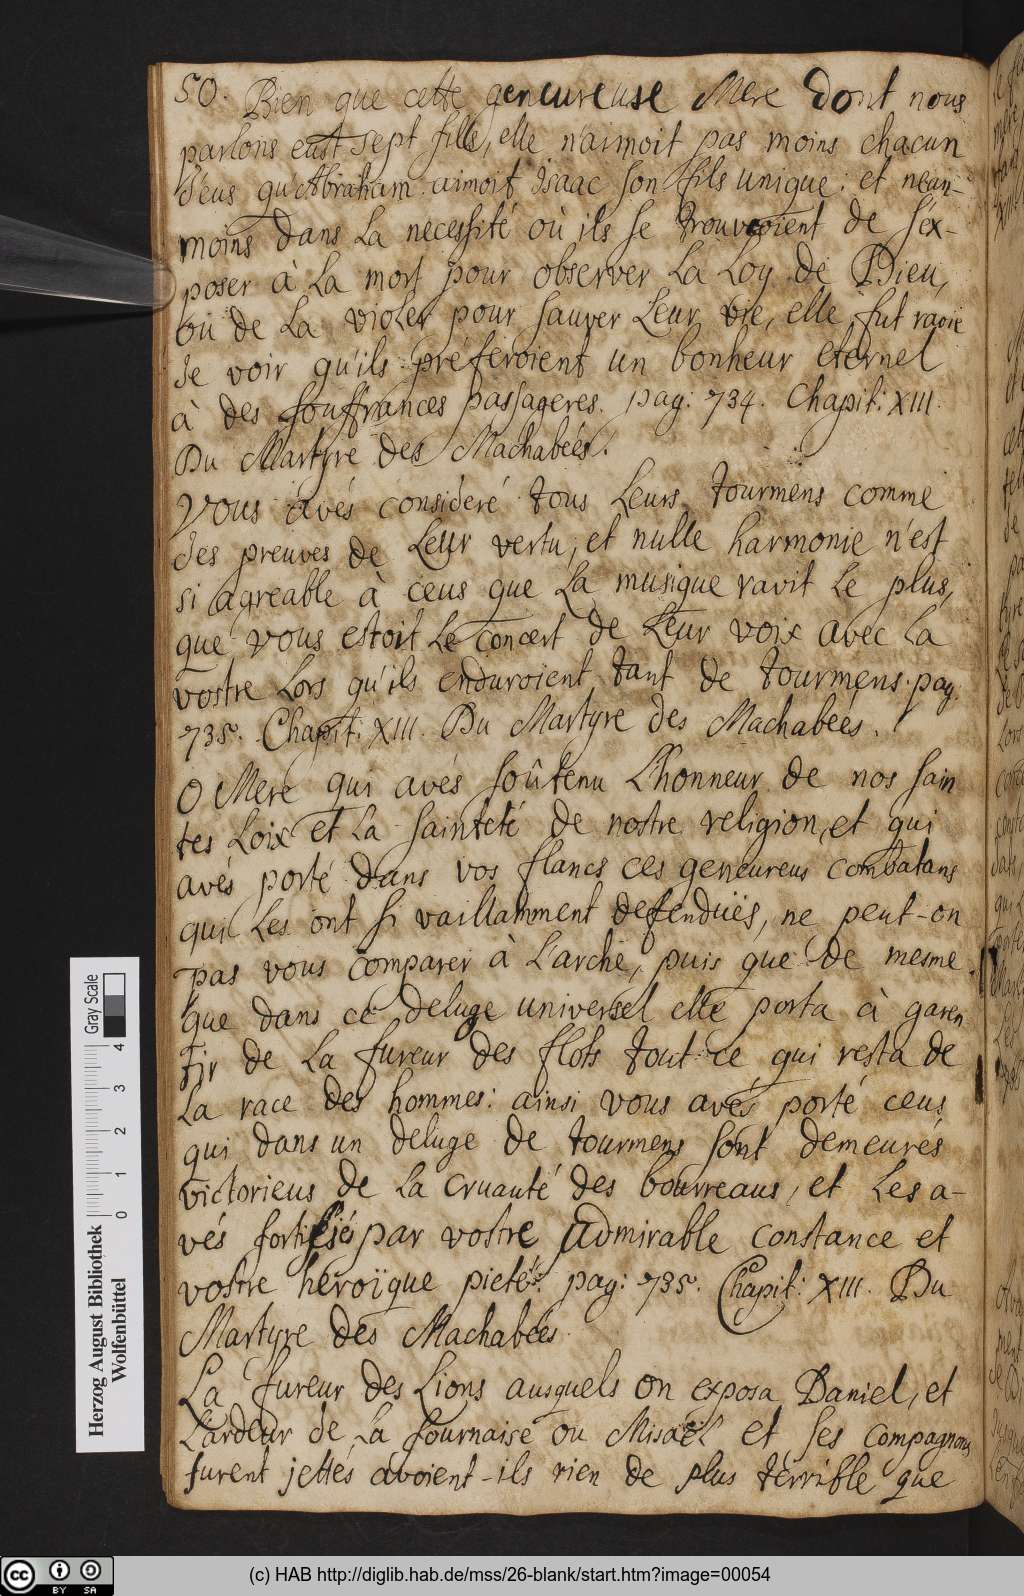 50. Bien que cette geneureuse Mere dont nous
parlons eust sept fills, elle n'aimoit pas moins chacun
d'eus qu'Abraham aimoit Isaac son fils unique: et nean-
moins dans La necessité où ils se trouvoient de s'ex-
poser à La mort pour observer La Loy de Dieu,
ou de La violer pour sauver Leur vie, elle fut ravie
de voir qu'ils préferoient un bonheur eternel
à des souffrances passageres. pag: 734. Chapit: XIII.
Du Martyre des Machabées.
Vous avés consideré tous Leurs tourmens comme
des preuves de Leur vertu, et nulle harmonie n'est
si agreable à ceus que La musique ravit Le plus,
que vous estoit Le concert de Leur voix avec La
vostre Lors qu'ils enduroient tant de tourmens. pag.
735. Chapit: XIII. Du Martyre des Machabées.
O Mere qui avés soûtenu L'honneur de nos sain
tes Loix et La sainteté de nostre religion, et qui
avés porté dans vos flancs ces geneureus combatans
qui Les ont si vaillamment defendües, ne peut-on
pas vous comparer à L'arche, puis que de mesme
que dans ce deluge universel elle porta à garen
tir de La fureur des flots tout ce qui resta de
La race des hommes: ainsi vous avés porté ceus
qui dans un deluge de tourmens sont demeurés
victorieus de La cruauté des bourreaus, et Les a-
vés fortifiés par vostre admirable constance et
vostre heroïque pieté. pag: 735. Chapit: XIII. Du
Martyre des Machabées.
La fureur des Lions ausquels on exposa Daniel, et
L'ardeur de La fournaise ou Misaël et ses compagnons
furent jettés avoient-ils rien de plus terrible que
Herzog August Bibliothek
Wolfenbüttel
0 1 2 3 4
Gray Scale
CC BY SA
(c) HAB http://diglib.hab.de/mss/26-blank/start.htm?image=00054